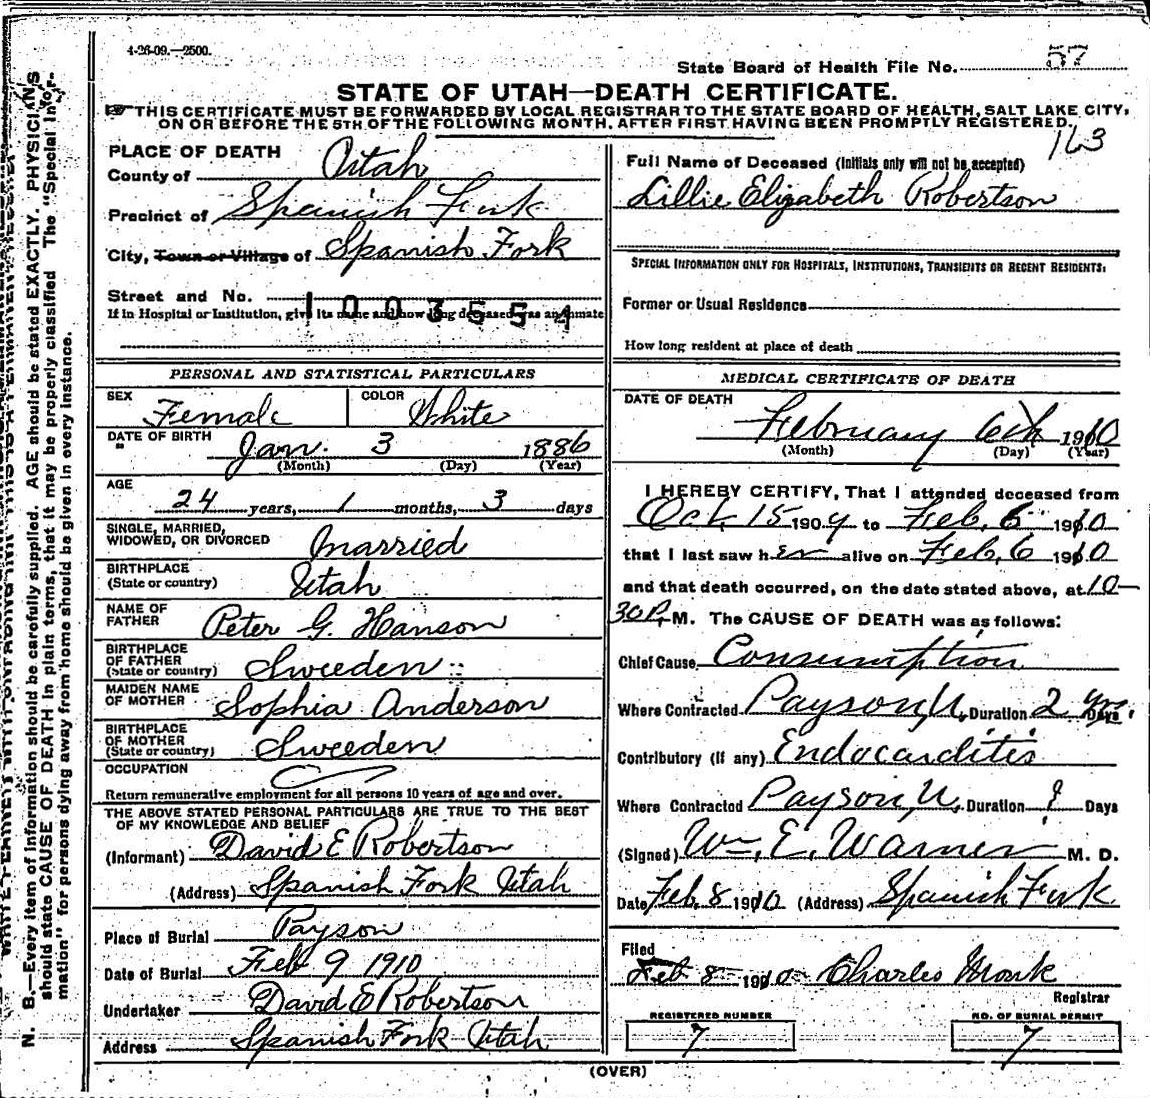 4-26-09.—2500.
57
State Board of Health File No.
STATE OF UTAH—DEATH CERTIFICATE.
THIS CERTIFICATE MUST BE FORWARDED BY LOCAL REGISTRAR TO THE STATE BOARD OF HEALTH, SALT LAKE CITY,
ON OR BEFORE THE 5TH OF THE FOLLOWING MONTH, AFTER FIRST HAVING BEEN PROMPTLY REGISTERED.
163
PLACE OF DEATH
County of Utah
Precinct of Spanish Fork
City, Town or Village of Spanish Fork
Street and No.
1003554
If in Hospital or Institution, give its name and how long deceased was an inmate
Full Name of Deceased (Initials only will not be accepted)
Lillie Elizabeth Robertson
SPECIAL INFORMATION ONLY FOR HOSPITALS, INSTITUTIONS, TRANSIENTS OR RECENT RESIDENTS:
Former or Usual Residence
How long resident at place of death
PERSONAL AND STATISTICAL PARTICULARS
SEX Female COLOR White
DATE OF BIRTH Jan. 3 1886
(Month) (Day) (Year)
AGE
24 years, 1 months, 3 days
SINGLE, MARRIED,
WIDOWED, OR DIVORCED Married
BIRTHPLACE
(State or country) Utah
NAME OF
FATHER Peter G. Hanson
BIRTHPLACE
OF FATHER
(State or country) Sweeden
MAIDEN NAME
OF MOTHER Sophia Anderson
BIRTHPLACE
OF MOTHER
(State or country) Sweeden
OCCUPATION
Return remunerative employment for all persons 10 years of age and over.
THE ABOVE STATED PERSONAL PARTICULARS ARE TRUE TO THE BEST
OF MY KNOWLEDGE AND BELIEF
(Informant) David E Robertson
(Address) Spanish Fork Utah
Place of Burial Payson
Date of Burial Feb 9 1910
Undertaker David E Robertson
Address Spanish Fork Utah
MEDICAL CERTIFICATE OF DEATH
DATE OF DEATH
February 6th 1910
(Month) (Day) (Year)
I HEREBY CERTIFY, That I attended deceased from
Oct. 15 1909 to Feb. 6 1910
that I last saw her alive on Feb. 6 1910
and that death occurred, on the date stated above, at 10—
30 P. M. The CAUSE OF DEATH was as follows:
Chief Cause, Consumption
Where Contracted Payson, U. Duration 2 yrs. Days.
Contributory (if any) Endocarditis
Where Contracted Payson, U. Duration ? Days
(Signed) Wm. E. Warner M. D.
Date Feb. 8 1910 (Address) Spanish Fork
Filed
Feb 8 1910 Charles Monk
Registrar
REGISTERED NUMBER
7
NO. OF BURIAL PERMIT
7
(OVER)
N. B.—Every item of information should be carefully supplied. AGE should be stated EXACTLY. PHYSICIANS
should state CAUSE OF DEATH in plain terms, that it may be properly classified. The "Special Infor-
mation" for persons dying away from home should be given in every instance.